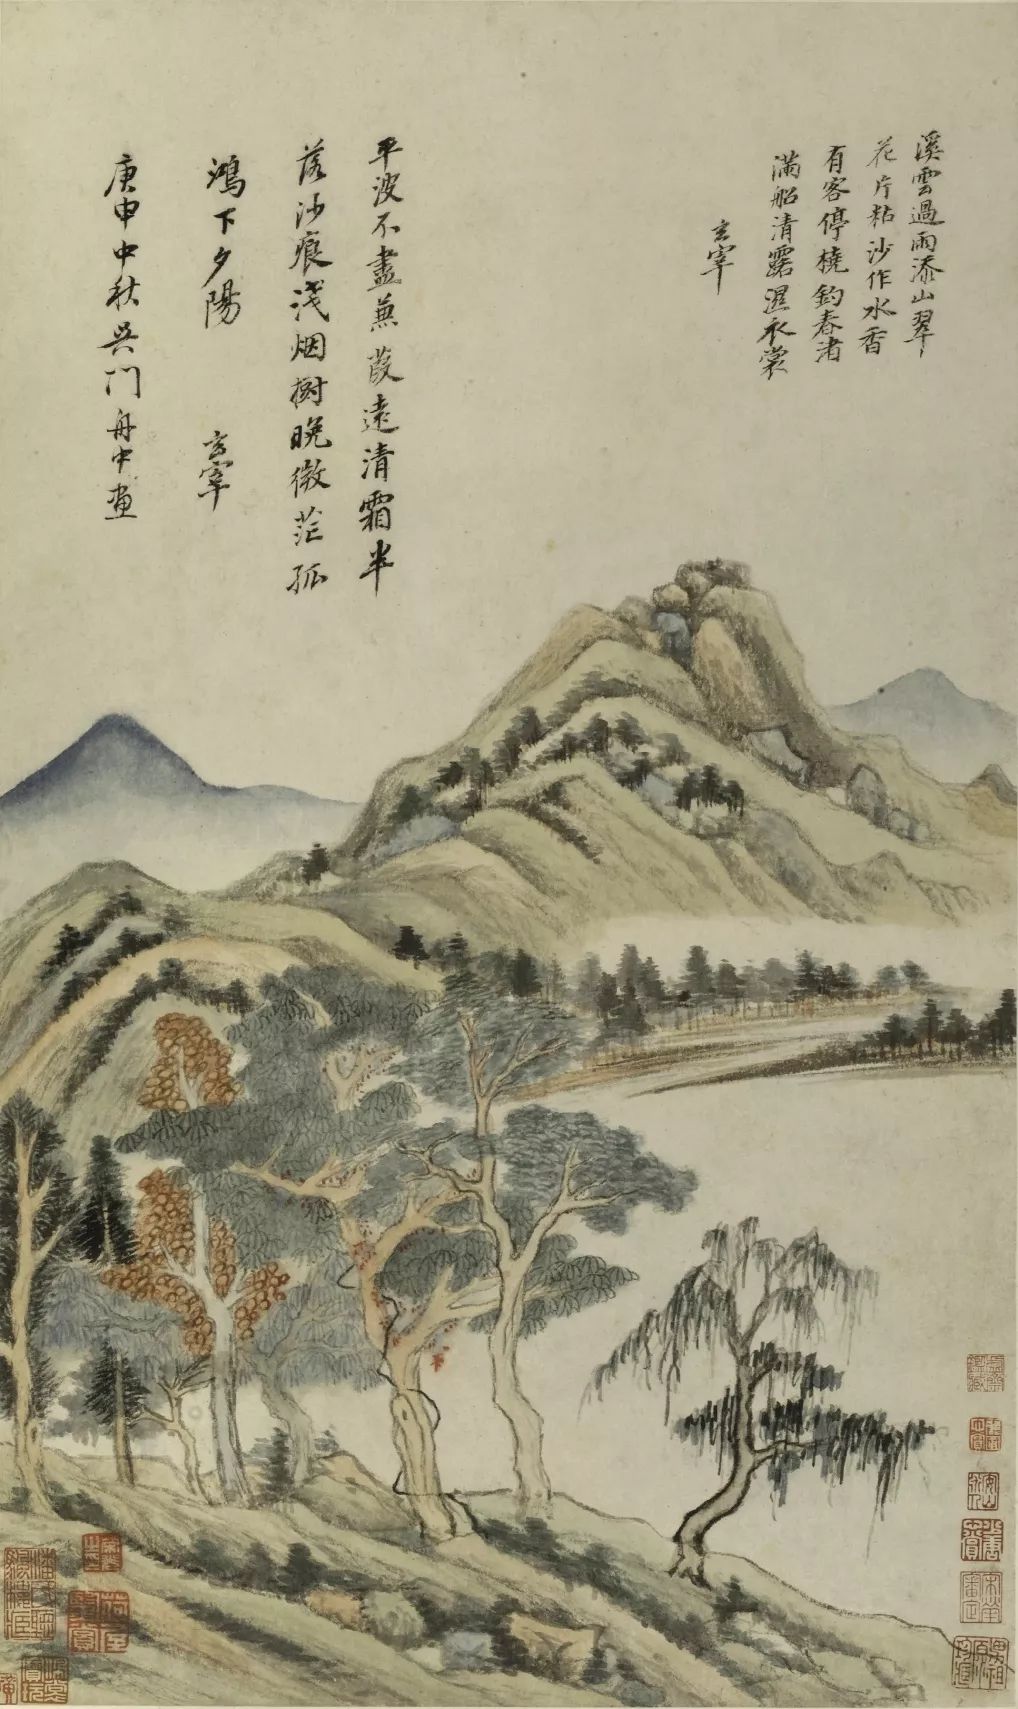 溪雲過雨添山翠
花片粘沙作水香
有客停橈釣春渚
滿船清露濕衣裳
玄宰
平波不盡蒹葭遠清霜半
落沙痕淺烟樹晚微茫孤
鴻下夕陽
玄宰
庚申中秋吴门舟中畫